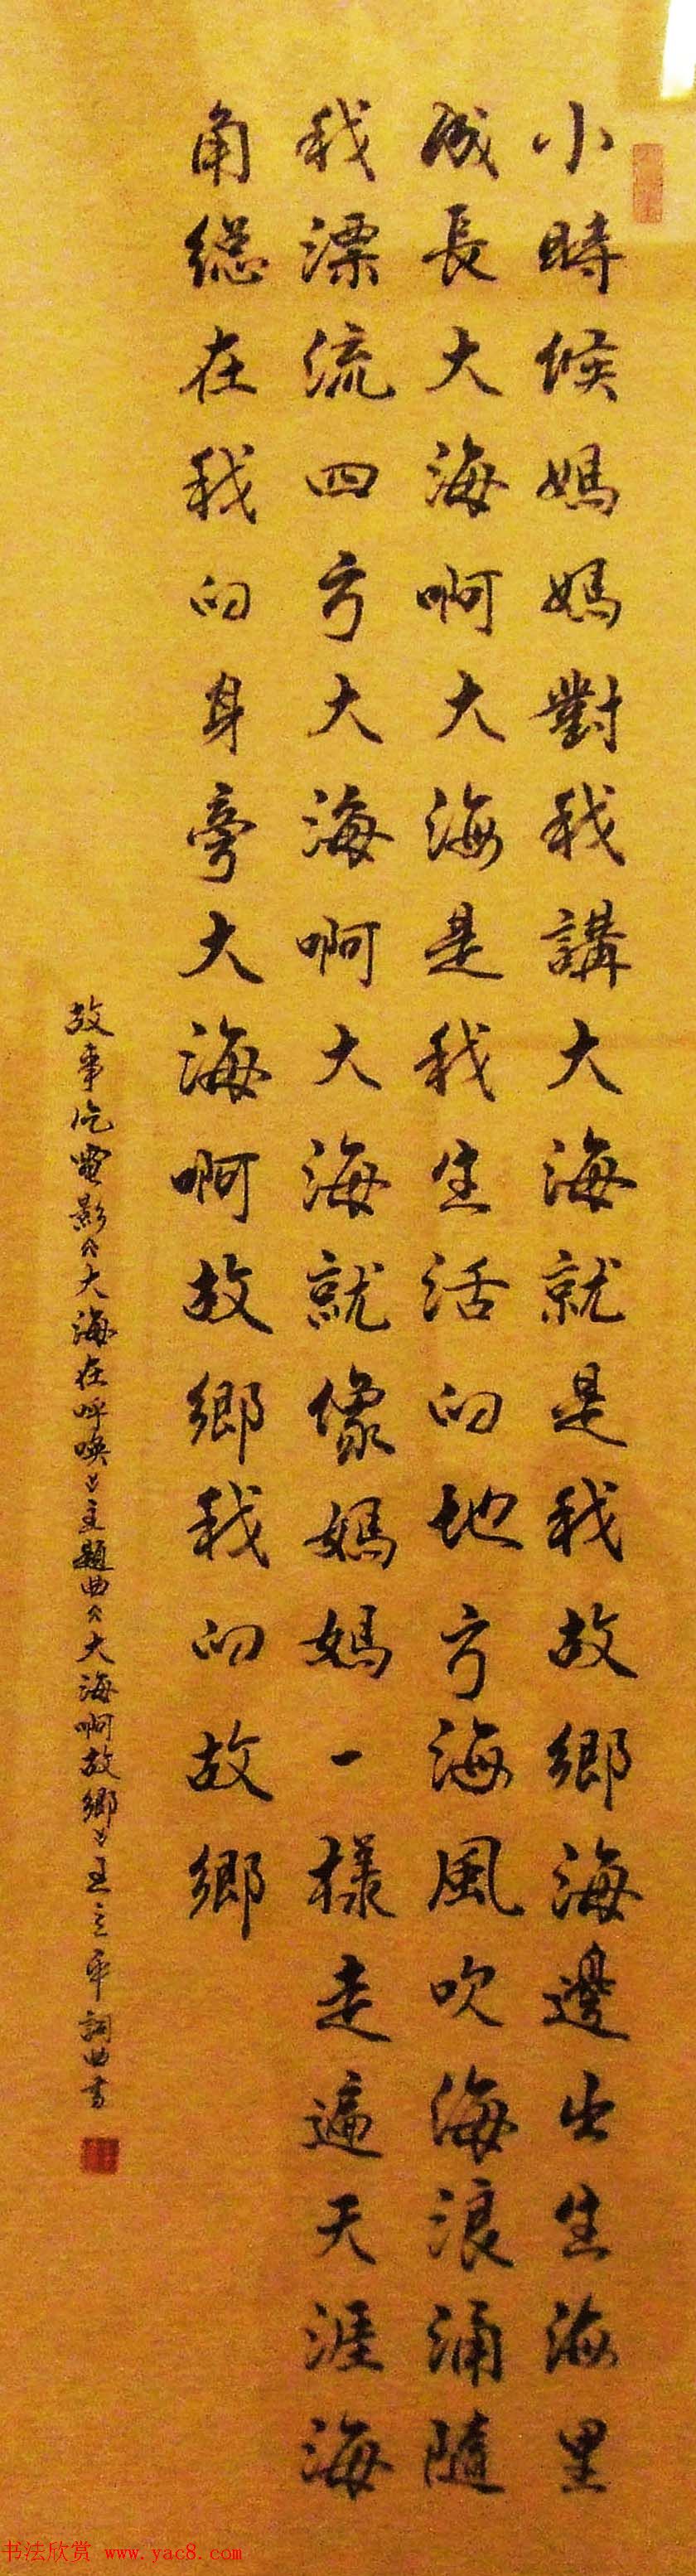 小時候媽媽對我講大海就是我故鄉海邊出生海里
成長大海啊大海是我生活的地方海風吹海浪涌隨
我漂流四方大海啊大海就像媽媽一樣走遍天涯海
角總在我的身旁大海啊故鄉我的故鄉
故事片電影《大海在呼唤》主題曲《大海啊故鄉》王立平詞曲書
书法欣赏 www.yac8.com